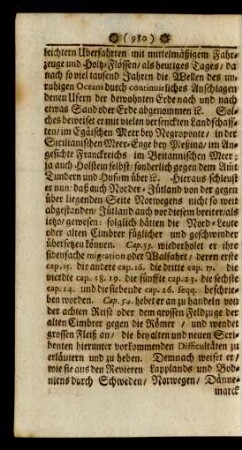 ( 980 )
leichtern Uberfahrten mit mittelmäßigem Fahr-
zeuge und Holtz-Flössen/ als heutiges Tages/ da
nach so viel tausend Jahren die Wellen des un-
ruhigen Oceans durch continuirliches Anschlagen
denen Ufern der bewohnten Erde nach und nach
etwas Sand oder Erde abgenommen ꝛc. Sol-
ches beweiset er mit vielen versenckten Landschaff-
ten/ im Egäischen Meer bey Negroponte/ in der
Sicilianischen Meer-Enge bey Meßina/ im An-
gesichte Franckreichs im Britannischen Meer;
ja auch Holstein selbst/ sonderlich gegen dem Amt
Tundern und Husum über ꝛc. Hieraus schleust
er nun: daß auch Norder-Jütland von der gegen
über liegenden Seite Norwegens nicht so weit
abgestanden/ Jütland auch vor diesem breiter/ als
itzo/ gewesen; folglich hätten die Nord-Leute
oder alten Cimbrer füglicher und geschwinder
übersetzen können. Cap. 53. wiederholet er ihre
siebenfache migration oder Walfahrt/ deren erste
cap. 15. die andere cap. 16. die dritte cap. 17. die
vierdte cap. 18. 19. die fünfte cap. 23. die sechste
cap. 24. und die siebende cap. 26. seqq. beschrie-
ben worden. Cap. 54. hebet er an zu handeln von
der achten Reise oder dem grossen Feldzuge der
alten Cimbrer gegen die Römer/ und wendet
grossen Fleiß an/ die bey alten und neuen Scri-
benten hierunter vorkommenden Difficultäten zu
erläutern und zu heben. Demnach weiset er/
wie sie aus den Revieren Lapplands und Bod-
niens durch Schweden/ Norwegen/ Dänne-
marck